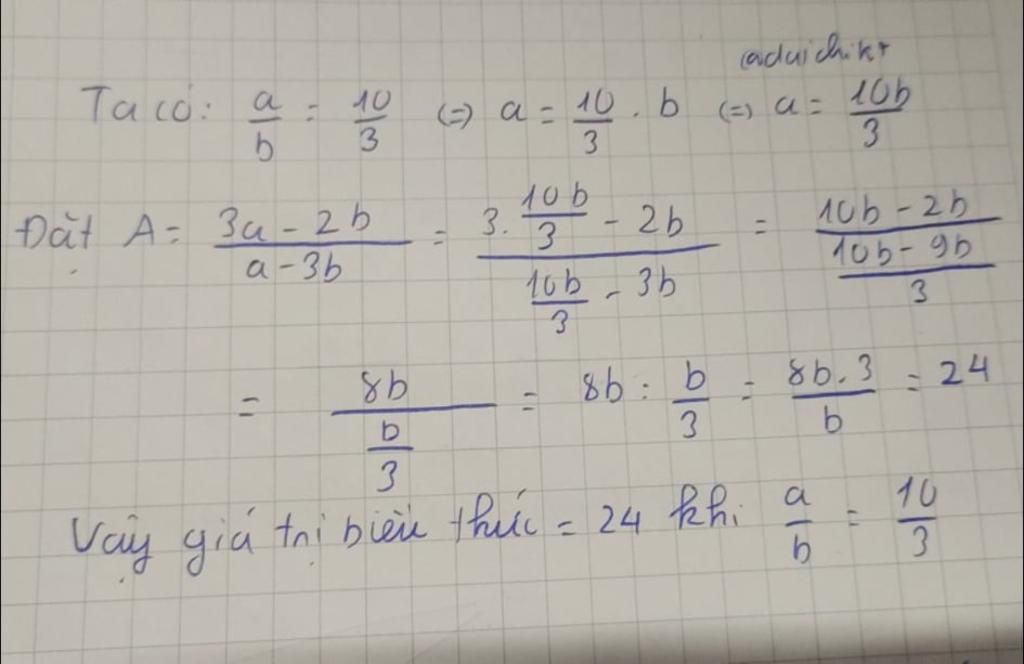 (aduichikt
Ta có: a/b = 10/3 (=) a = 10/3 . b (=) a = 10b/3
Đặt A = (3a - 2b)/(a - 3b) = (3. 10b/3 - 2b)/(10b/3 - 3b) = (10b - 2b)/((10b - 9b)/3)
= 8b/(b/3) = 8b : b/3 = (8b.3)/b = 24
Vậy giá trị biểu thức = 24 khi a/b = 10/3